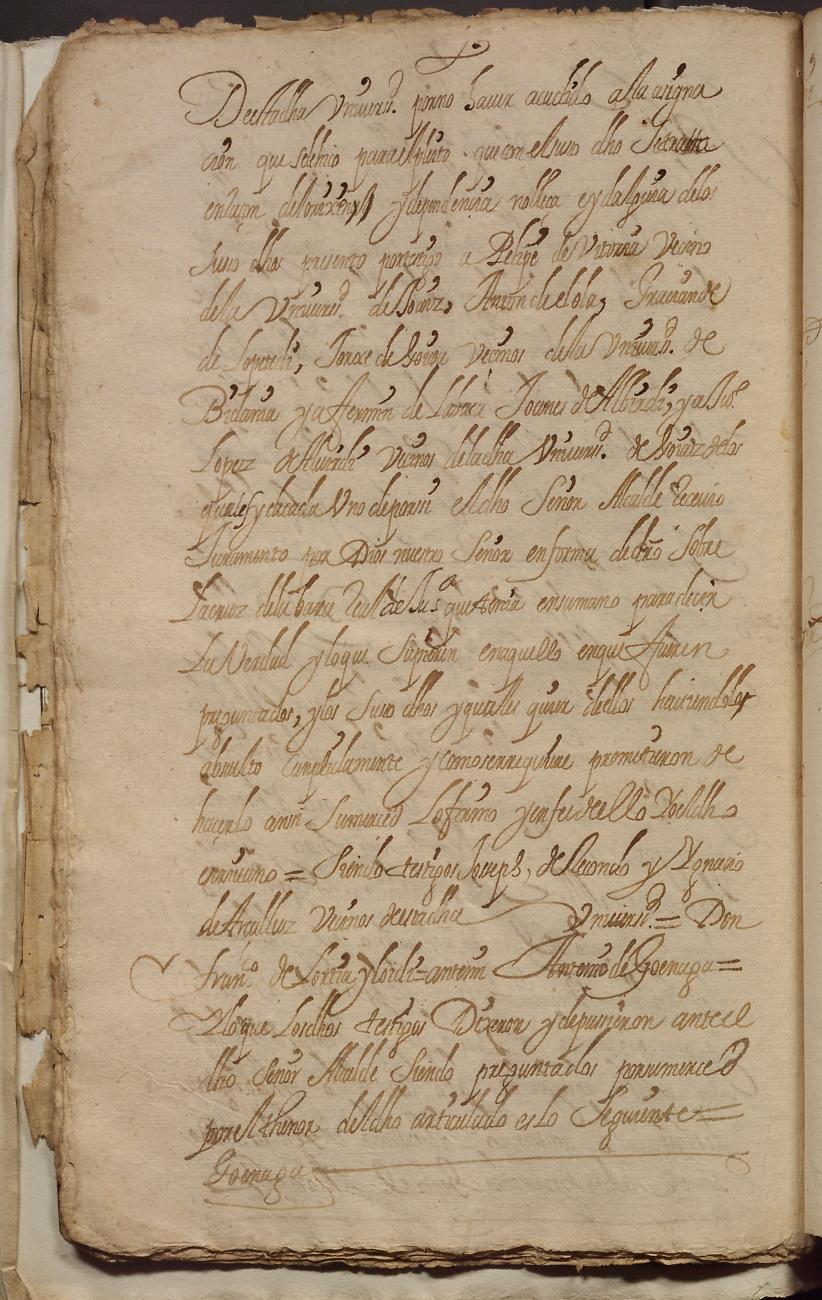 Deesta dha Vniversd. por no haver acudido a la asigna
cion que se le hizo para el pleito que con el suso dho Se trata
en raçon de y dependençia nobleça e ydalguia de los
suso dhos presento por testigo a Phelipe de Vitoria Veçino
de la Vniversd. de Antton de elola, Graçian de
de Lopetedi, Jorxe de Veçinos de la Vniversd. de
Bidania y a Fermin de Joanes de Albirdi, y a Juo.
Lopez de Veçinos de la dha Vniversd. de de los
quales y de cada Vno de por si el dho Señor Alcalde Recevio
Juramento por Dios nuestro Señor en forma de dro Sobre
La cruz de la bara Real de Jusa que tenia en su mano para deçir
La Verdad y lo que Supieren en aquello en que fueren
preguntados, y los suso dhos y quales quier dellos haviendolo
absuelto Cunplidamente y como se rrequiere prometieron de
haçerlo ansi Su merced Lo firmo y en fee de ello Yo el dho
escrivano = Siendo testigos Joseph, de Recondo y Ygnacio
de Veçinos de esta dha Vniversd. = Don
Frano. de Loidi = ante mi Antonio de Goenaga =
Y lo que Los dhos testigos Dixeron y depusieron ante el
dho Señor Alcalde Siendo preguntados por su merced
por el thenor del dho articulado es lo Seguiente =
Goenaga